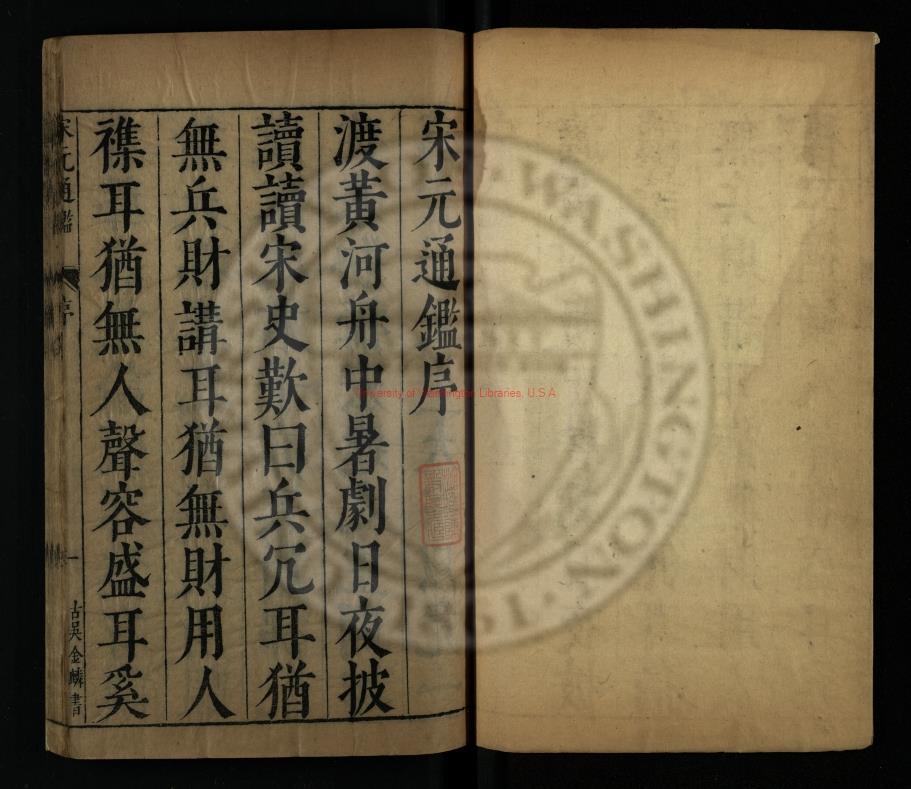 宋元通鑑序
渡黃河舟中暑劇日夜披
讀讀宋史歎曰兵冗耳猶
無兵財講耳猶無財用人
襍耳猶無人聲容盛耳奚
宋元通鑑
序
一
古吳金麟書
University of Washington Libraries, U.S.A.
WASHINGTON